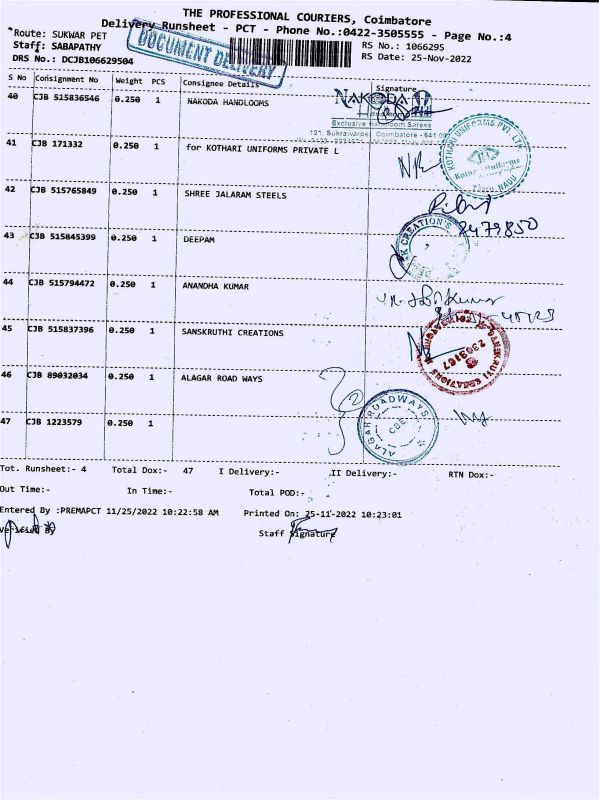 THE PROFESSIONAL COURIERS, Coimbatore
Delivery Runsheet - PCT - Phone No.:0422-3505555 - Page No.:4
Route: SUKWAR PET
RS No.: 1066295
Staff: SABAPATHY
RS Date: 25-Nov-2022
DRS No.: DCJB106629504
DOCUMENT DELIVERY
S No Consignment No Weight PCS Consignee Details Signature
40 CJB 515836546 0.250 1 NAKODA HANDLOOMS
NAKODA
Exclusive Handloom Sarees
121, Sukrawarpe Coimbatore - 641 00
41 CJB 171332 0.250 1 for KOTHARI UNIFORMS PRIVATE L
KOTHARI UNIFORMS PVT. LTD.
Kothari Uniforms
TAMIL NADU
42 CJB 515765849 0.250 1 SHREE JALARAM STEELS
9479850
43 CJB 515845399 0.250 1 DEEPAM
CREATION'S
44 CJB 515794472 0.250 1 ANANDHA KUMAR
45 CJB 515837396 0.250 1 SANSKRUTHI CREATIONS
SANSKRUTI CREATIONS
2303167
46 CJB 89032034 0.250 1 ALAGAR ROAD WAYS
47 CJB 1223579 0.250 1
ALAGAR ROADWAYS
CBE
Tot. Runsheet:- 4 Total Dox:- 47 I Delivery:- II Delivery:- RTN Dox:-
Out Time:- In Time:- Total POD:-
Entered By :PREMAPCT 11/25/2022 10:22:58 AM Printed On: 25-11-2022 10:23:01
Verified By Staff Signature